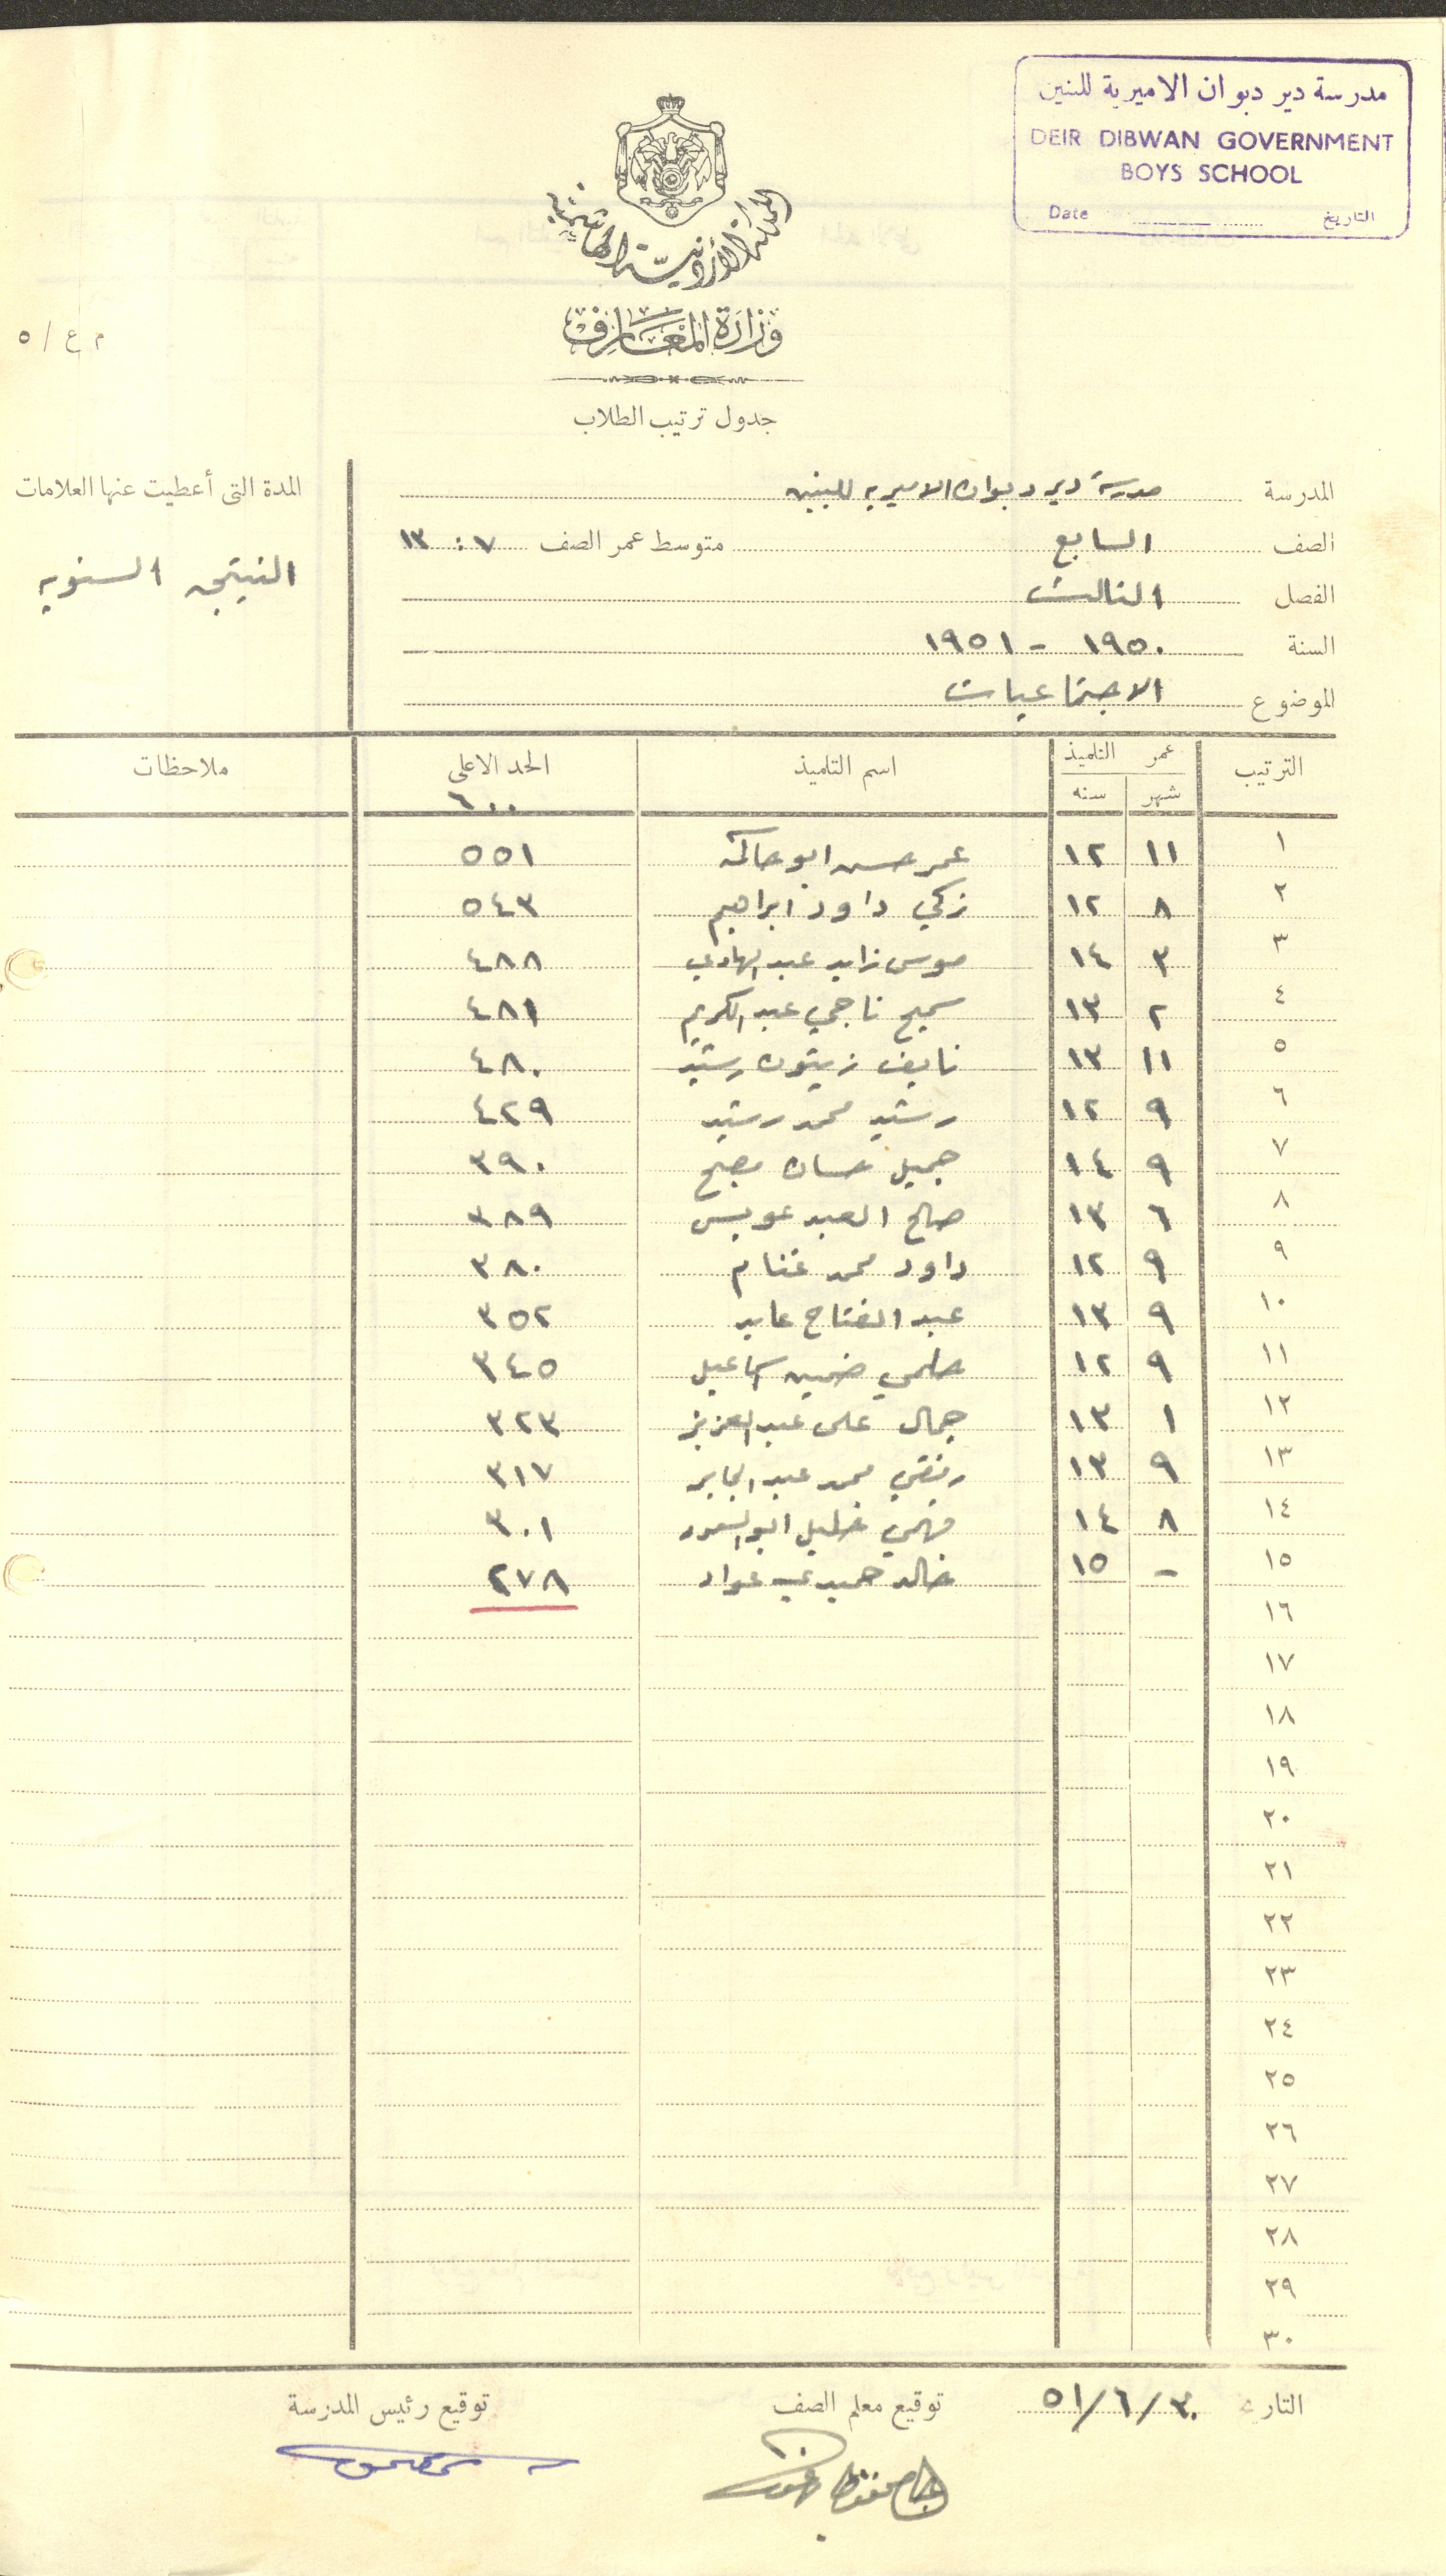 مدرسة دير دبوان الاميرية للبنين
DEIR DIBWAN GOVERNMENT
BOYS SCHOOL
Date التاريخ
المملكة الأردنية الهاشمية
وزارة المعارف
م ع / ٥
جدول ترتيب الطلاب
المدرسة مدرسة دير دبوان الاميريه للبنين
الصف السابع متوسط عمر الصف ٧ : ١٣
الفصل الثالث
السنة ١٩٥٠ - ١٩٥١
الموضوع الاجتماعيات
المدة التى أعطيت عنها العلامات
النتيجه السنويه
الترتيب عمر التلميذ اسم التلميذ الحد الاعلى ملاحظات
شهر سنه ٦٠٠
١ ١١ ١٢ عمر حسن ابو حاكمه ٥٥١
٢ ٨ ١٢ زكي داود ابراهيم ٥٤٣
٣ ٣ ١٤ موسى زايد عبد الهادي ٤٨٨
٤ ٢ ١٣ سميح ناجي عبد الكريم ٤٨١
٥ ١١ ١٣ نايف زيتون رشيد ٤٨٠
٦ ٩ ١٢ رشيد محمد رشيد ٤٢٩
٧ ٩ ١٤ جميل حسان مصبح ٣٩٠
٨ ٦ ١٣ صالح العبد عويس ٣٨٩
٩ ٩ ١٢ داود محمد غنام ٣٨٠
١٠ ٩ ١٣ عبد الفتاح عابد ٣٥٢
١١ ٩ ١٢ حلمي خميس اسماعيل ٣٤٥
١٢ ١ ١٣ جمال على عبد العزيز ٣٢٣
١٣ ٩ ١٣ محمد عبد الجابر ٣١٧
١٤ ٨ ١٤ فهمي خليل ابو السعود ٣٠١
١٥ - ١٥ خالد حميدي عواد ٢٧٨
١٦
١٧
١٨
١٩
٢٠
٢١
٢٢
٢٣
٢٤
٢٥
٢٦
٢٧
٢٨
٢٩
٣٠
التاريخ ٣٠/٦/٥١ توقيع معلم الصف توقيع رئيس المدرسة